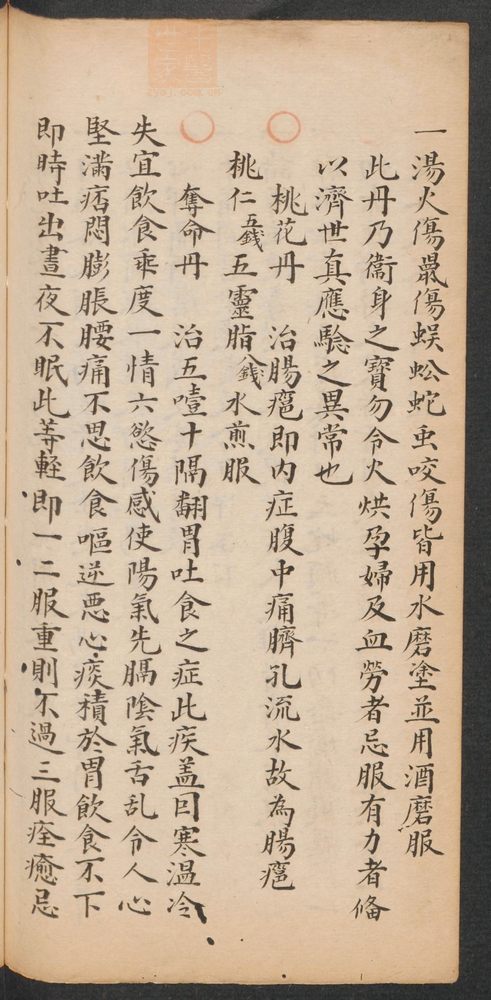 一湯火傷鼠傷蜈蚣蛇虫咬傷皆用水磨塗並用酒磨服
此丹乃衞身之寶勿令火烘孕婦及血勞者忌服有力者俻
以濟世真應驗之異常也
桃花丹 治腸癰即內症腹中痛臍孔流水故為腸癰
桃仁五錢五靈脂八錢水煎服
奪命丹 治五噎十隔翻胃吐食之症此疾盖因寒溫冷
失宜飲食乖度一情六慾傷感使陽氣先膈陰氣舌乱令人心
堅滿痞悶膨脹腰痛不思飲食嘔逆悪心痰積於胃飲食不下
即時吐出晝夜不眠此等軽即一二服重則不過三服痊癒忌